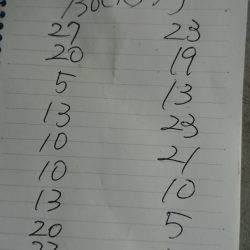 27 23
20 19
5 13
13 23
10 21
10 10
13 5
20